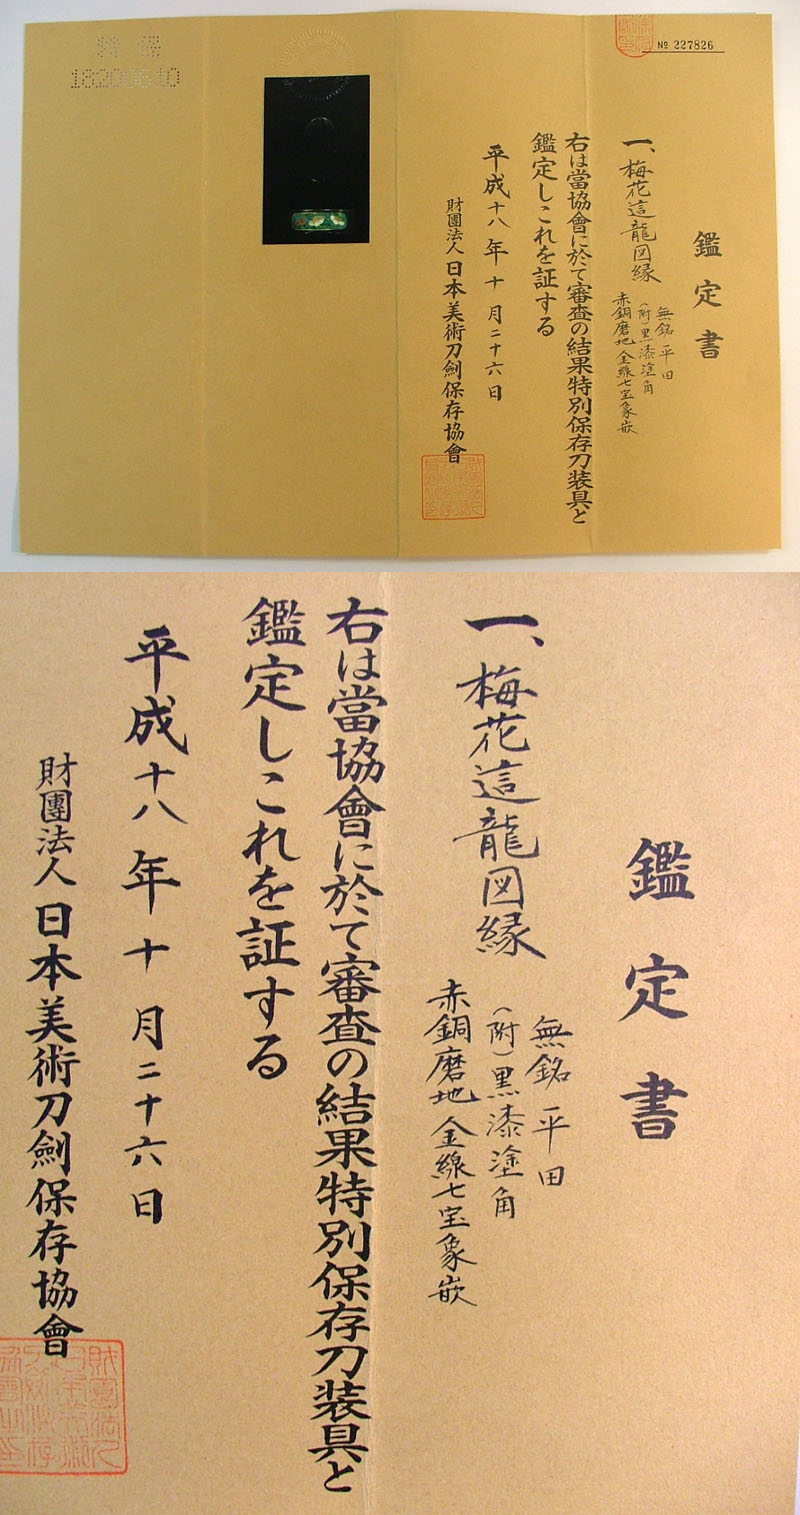 № 227826
鑑定書
一、梅花這龍図縁
無銘 平田
(附)黒漆塗角
赤銅磨地 金線七宝象嵌
右は當協會に於て審査の結果特別保存刀装具と
鑑定しこれを証する
平成十八年十月二十六日
財團法人日本美術刀劍保存協會
鑑定書
一、梅花這龍図縁
無銘 平田
(附)黒漆塗角
赤銅磨地 金線七宝象嵌
右は當協會に於て審査の結果特別保存刀装具と
鑑定しこれを証する
平成十八年十月二十六日
財團法人日本美術刀劍保存協會